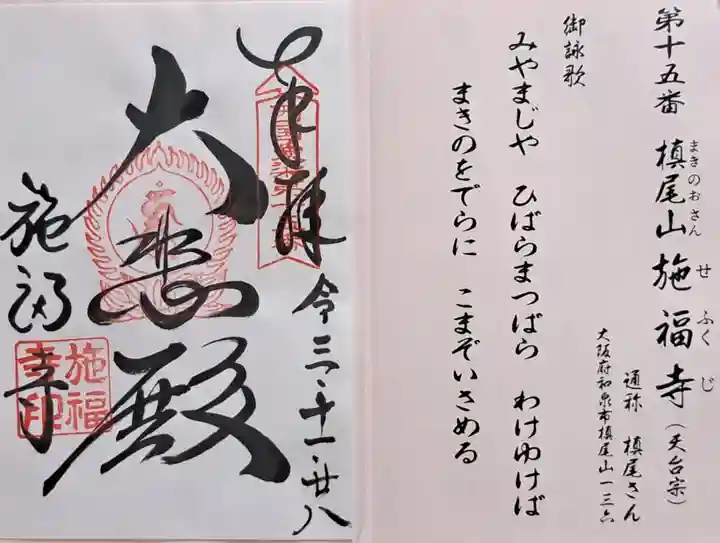 第十五番 槙尾山施福寺(天台宗)
まきのおさん せふくじ
通称 槙尾さん
大阪府和泉市槙尾山一三六
御詠歌
みやまじや ひばらまつばら わけゆけば
まきのをでらに こまぞいさめる
奉拝
令三・十一・廿八
大悲殿
施福寺
施福
寺印